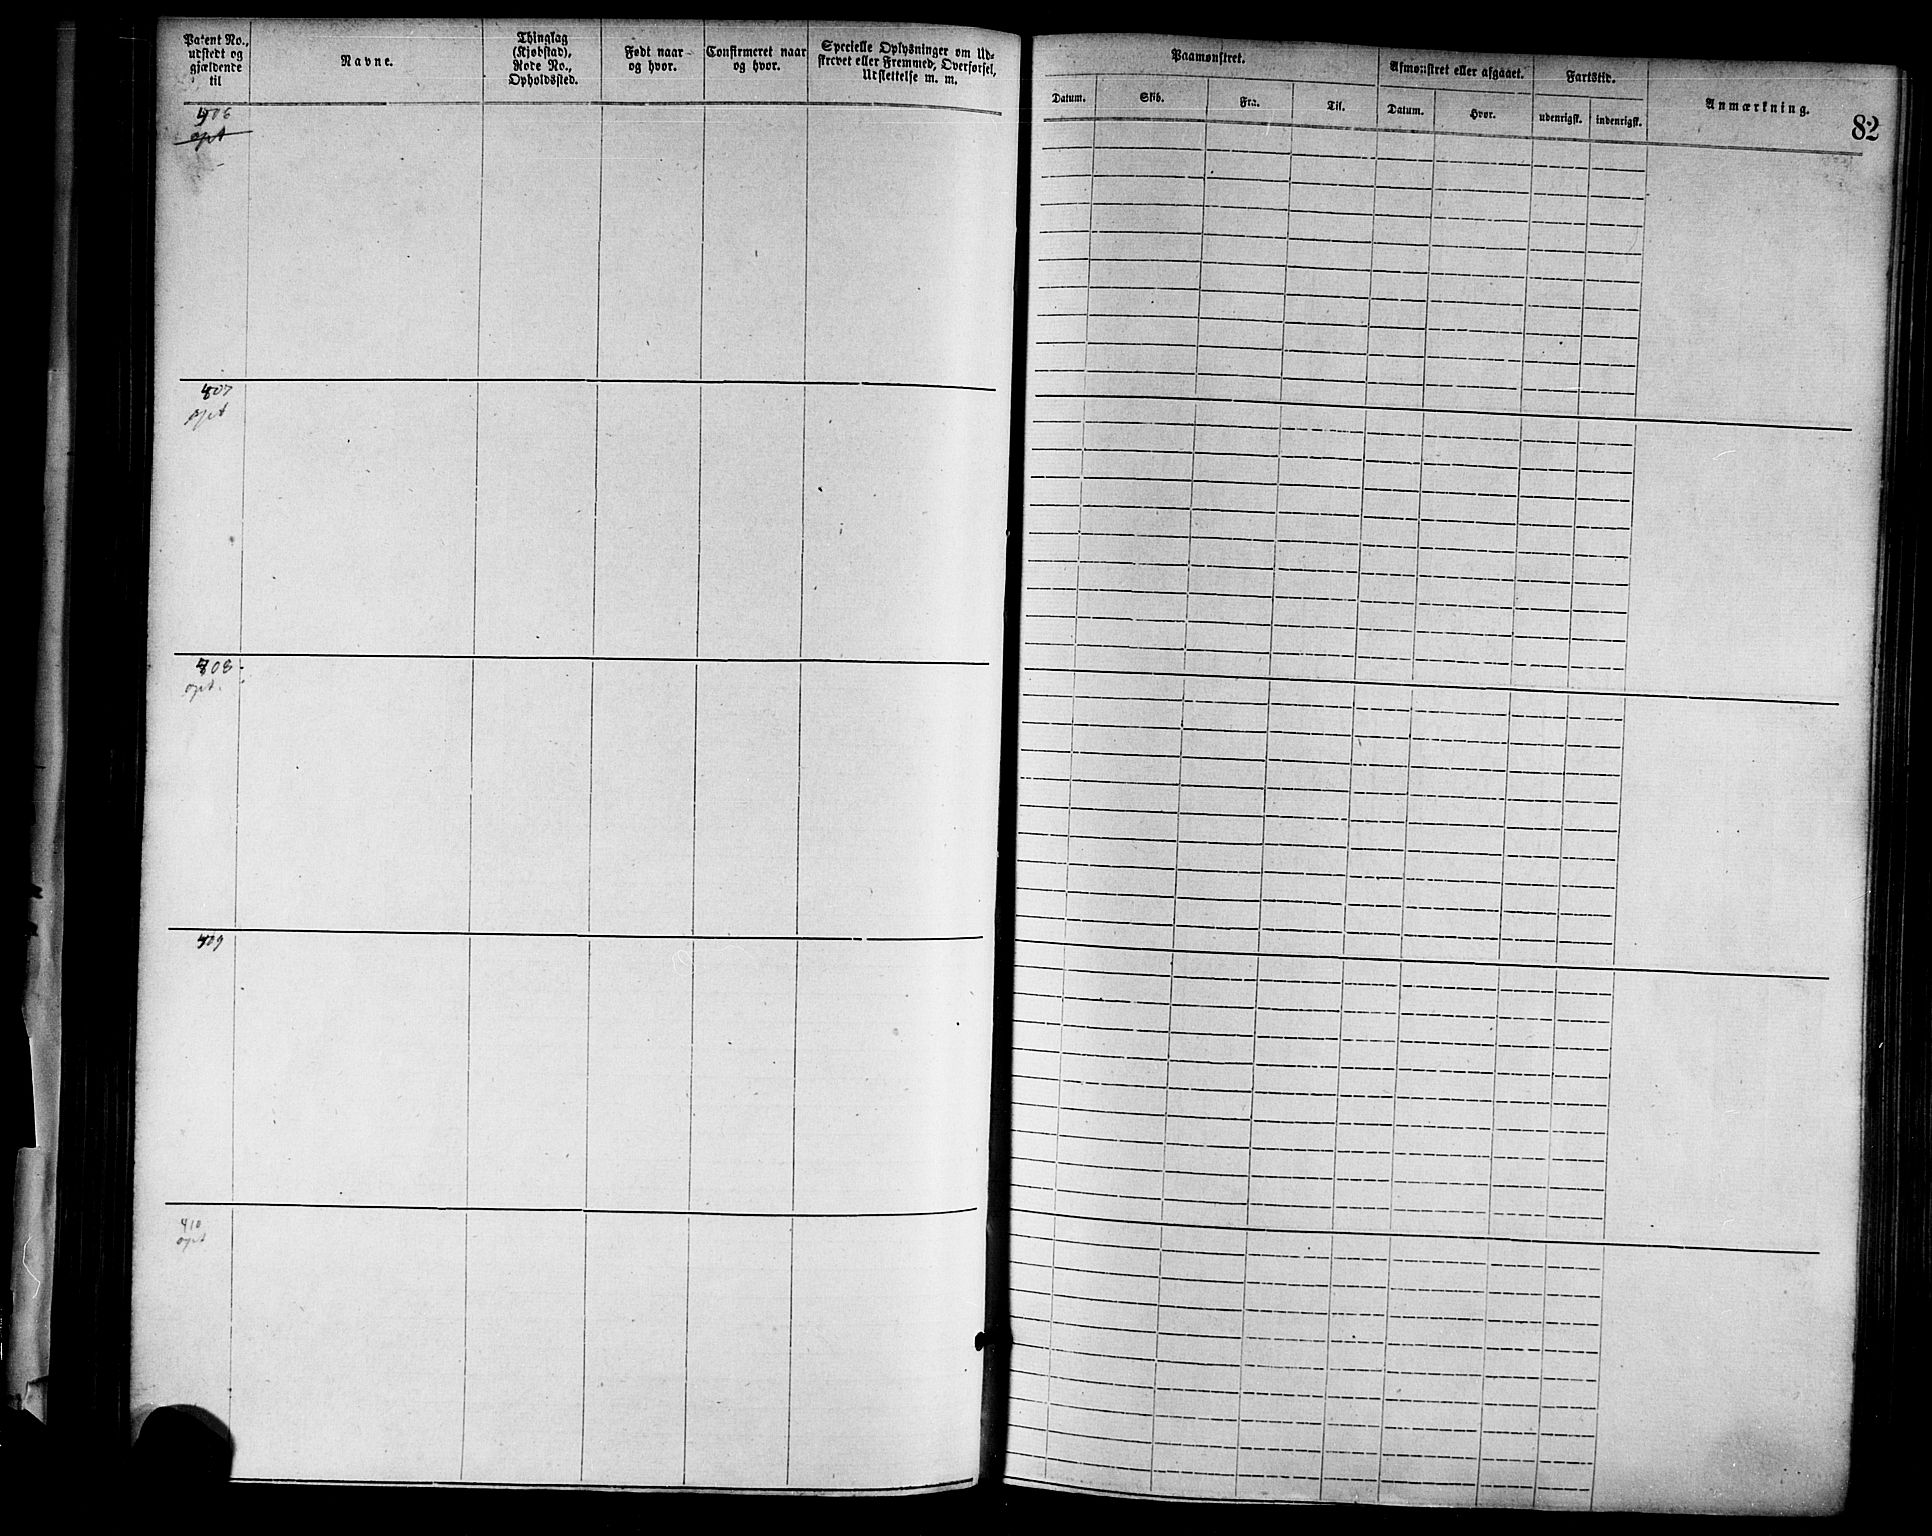 Patent No.,
udstedt og
gjældende
til
Navne.
Thinglag
(Kjøbstad),
Rode No.,
Opholdssted.
Født naar
og hvor.
Confirmeret naar
og hvor.
Specielle Oplysninger om Ud-
skrevet eller Fremmed, Overførsel,
Udslettelse m. m.
406
opt
407
opt
408
opt.
409
410
opt
Paamønstret.
Datum.
Skib.
Fra.
Til.
Afmønstret eller afgaaet.
Datum.
Hvor.
Fartstid.
udenrigsk.
indenrigsk.
Anmærkning.
82